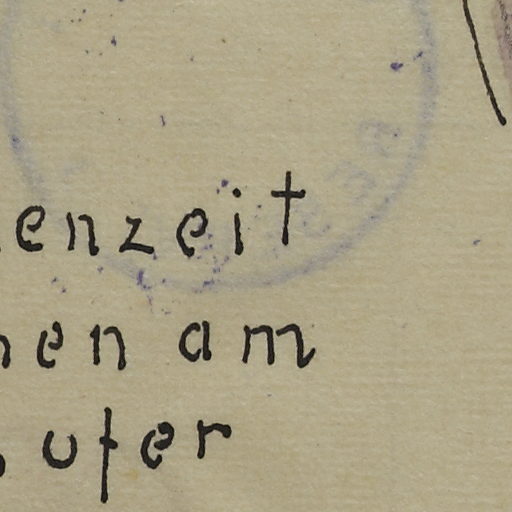 enzeit
nen am
ufer